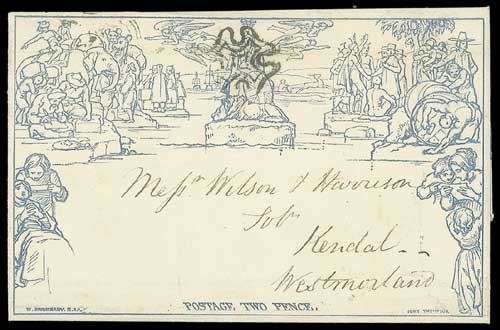 Messrs Wilson & Harrison
Solrs
Kendal --
Westmorland
W. MULREADY, R.A.
POSTAGE TWO PENCE.
JOHN THOMPSON